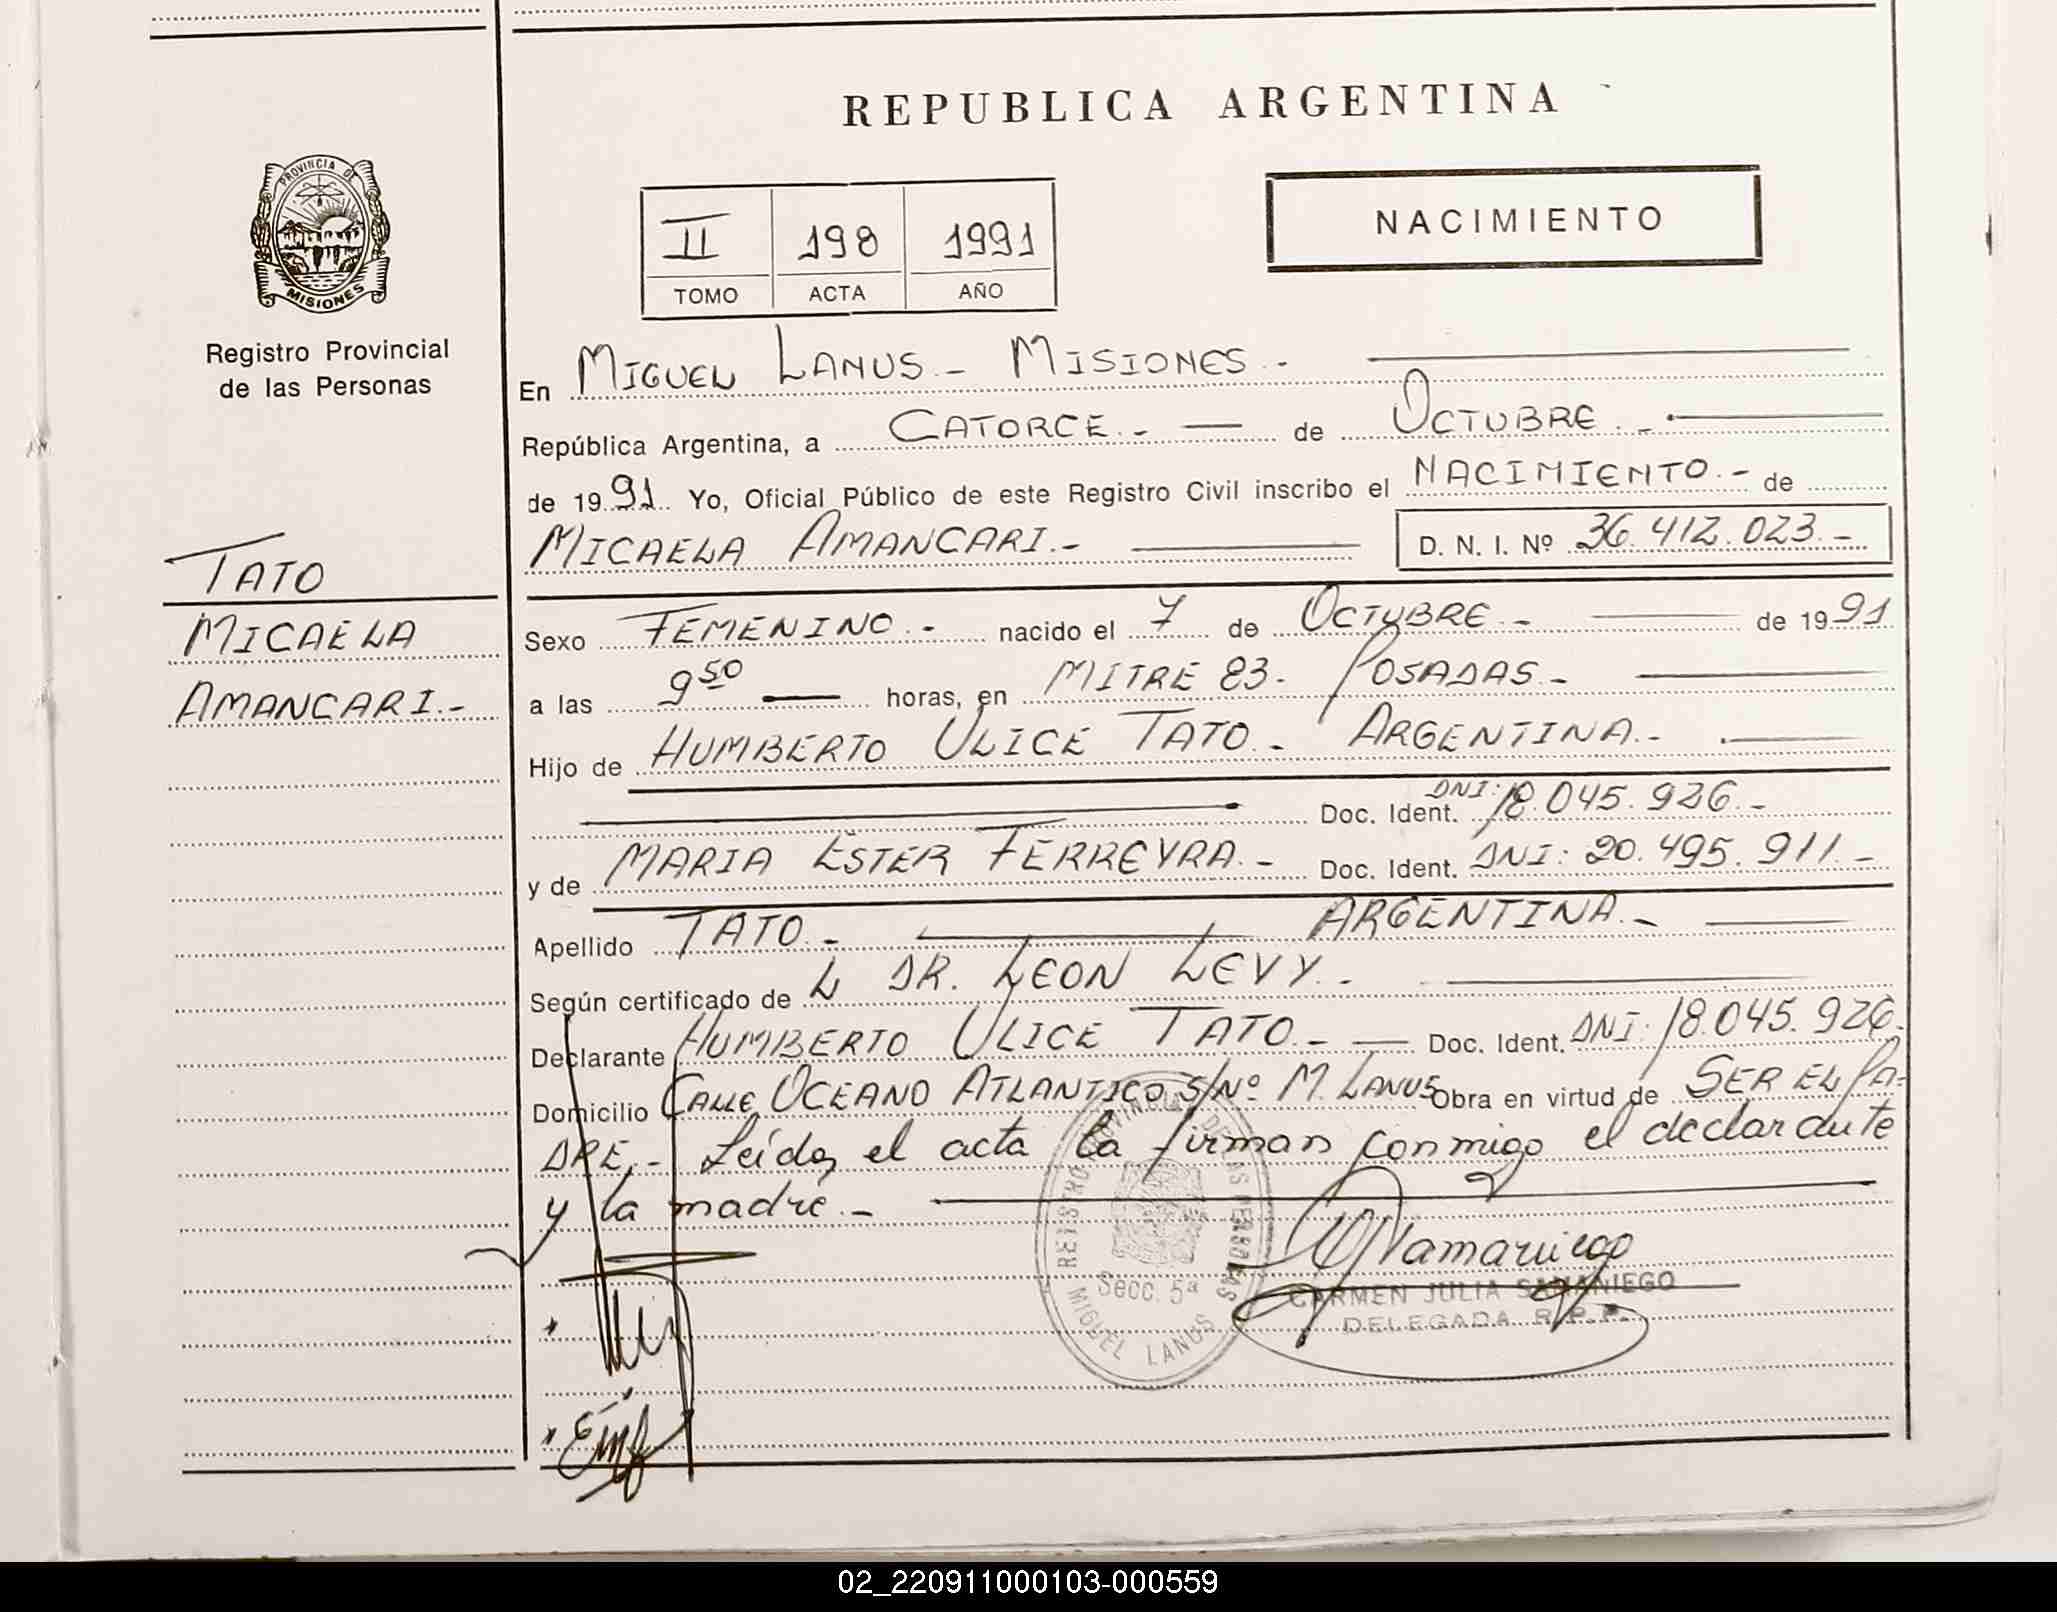 REPUBLICA ARGENTINA
PROVINCIA DE
MISIONES
Registro Provincial
de las Personas
II 198 1991
TOMO ACTA AÑO
NACIMIENTO
En MIGUEL LANUS - MISIONES.-
República Argentina, a CATORCE.- de OCTUBRE.-
de 1991. Yo, Oficial Público de este Registro Civil inscribo el NACIMIENTO.- de
MICAELA AMANCARI.- D. N. I. Nº 36.412.023.-
TATO
MICAELA
AMANCARI.-
Sexo FEMENINO.- nacido el 7 de OCTUBRE.- de 1991
a las 9 50 horas, en MITRE 83. POSADAS.-
Hijo de HUMBERTO ULICE TATO.- ARGENTINA.-
Doc. Ident. DNI: 18.045.926.-
y de MARIA ESTER FERREYRA.- Doc. Ident. DNI: 20.495.911.-
Apellido TATO.- ARGENTINA.-
Según certificado de L DR. LEON LEVY.-
Declarante HUMBERTO ULICE TATO.- Doc. Ident. DNI: 18.045.926.
Domicilio CALLE OCEANO ATLANTICO S/Nº M. LANUS Obra en virtud de SER EL PA-
DRE.- Leída el acta la firman conmigo el declarante
y la madre.-
Secc. 5ª
MIGUEL LANUS
CARMEN JULIA SAMANIEGO
DELEGADA R.P.P.
02_220911000103-000559